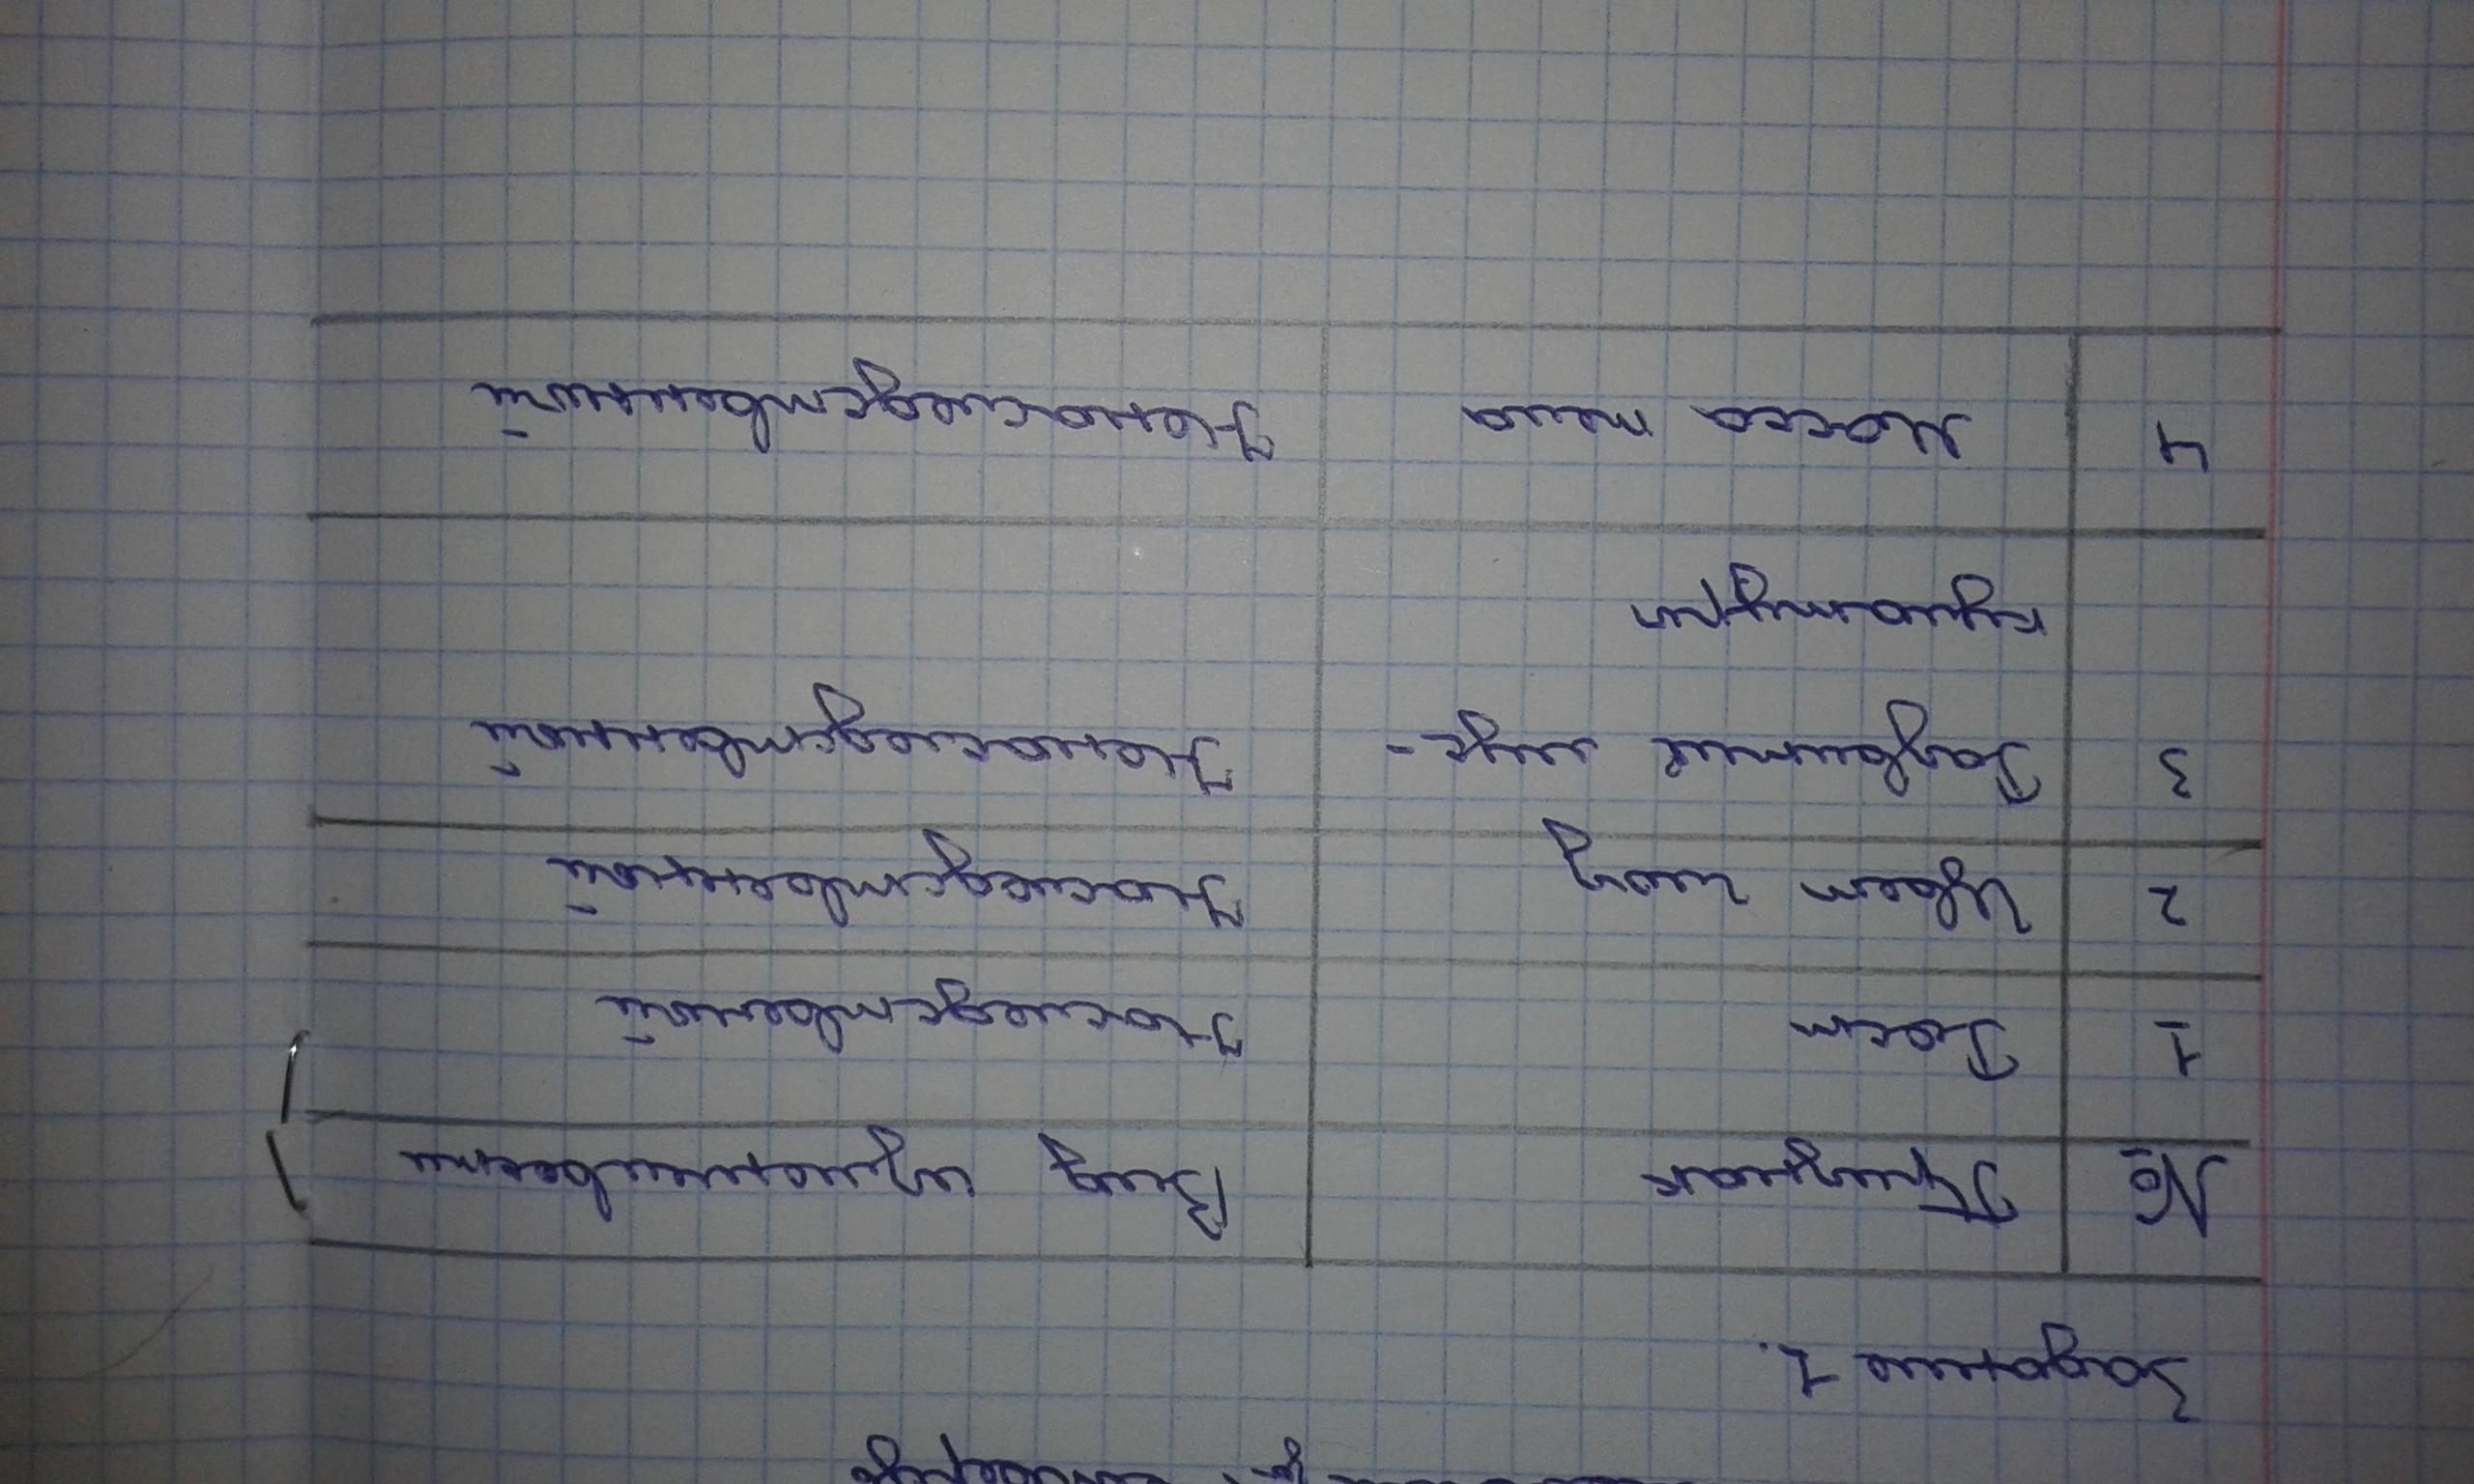 Задание 1.
№ Признак Вид изменчивости
1 Рост Наследственый
2 Цвет глаз Наследственный
3 Развитие мус- Ненаследственный
кулатуры
4 Масса тела Ненаследственный